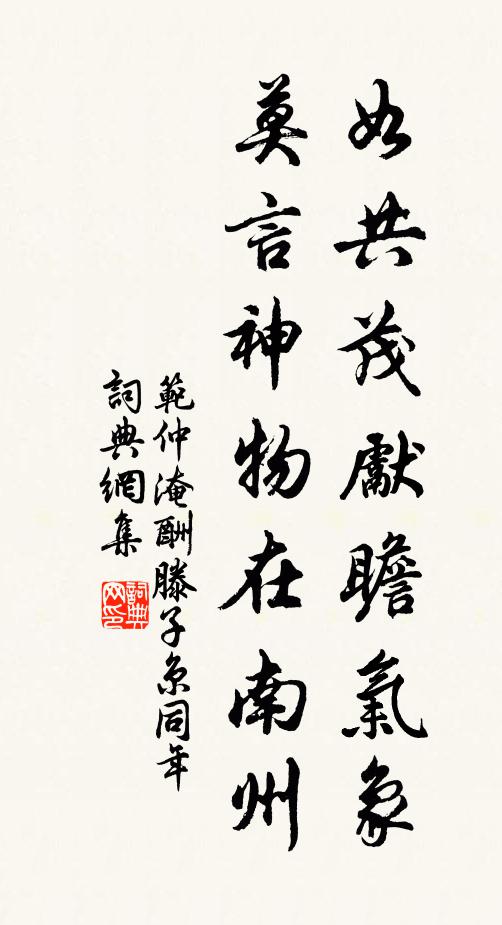 如共茂獻瞻氣象
莫言神物在南州
範仲淹酬滕子京同年
詞典網集
詞典网印